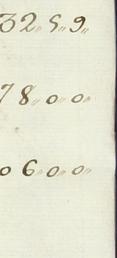 32〃5〃9〃
78〃0〃0〃
06〃0〃0〃